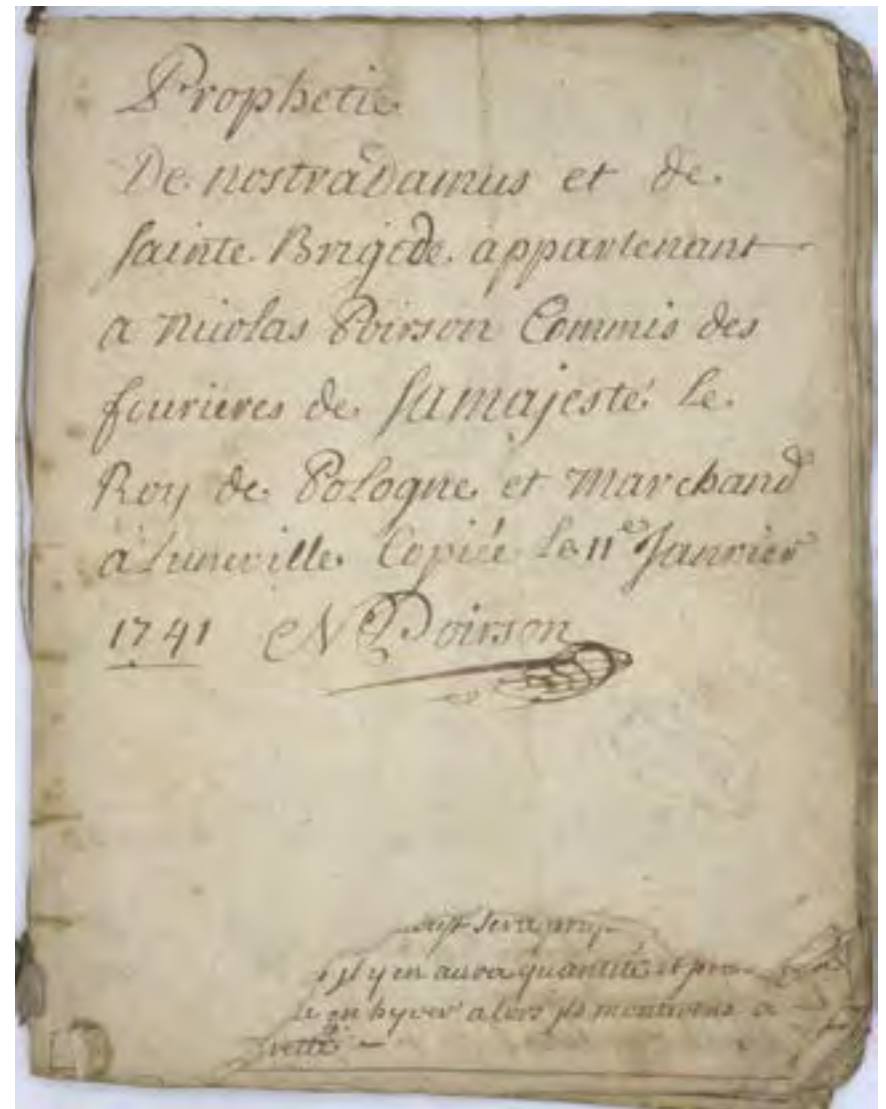 Prophetie
De nostradamus et de
sainte Brigede appartenant
a Nicolas Poirson Commis des
fourieres de sa majesté le
Roy de Pologne et marchand
à Luneville Copiée Le 11e Janvier
1741 N Poirson
sera
jl y en aura quantité et
en hyver alors jls